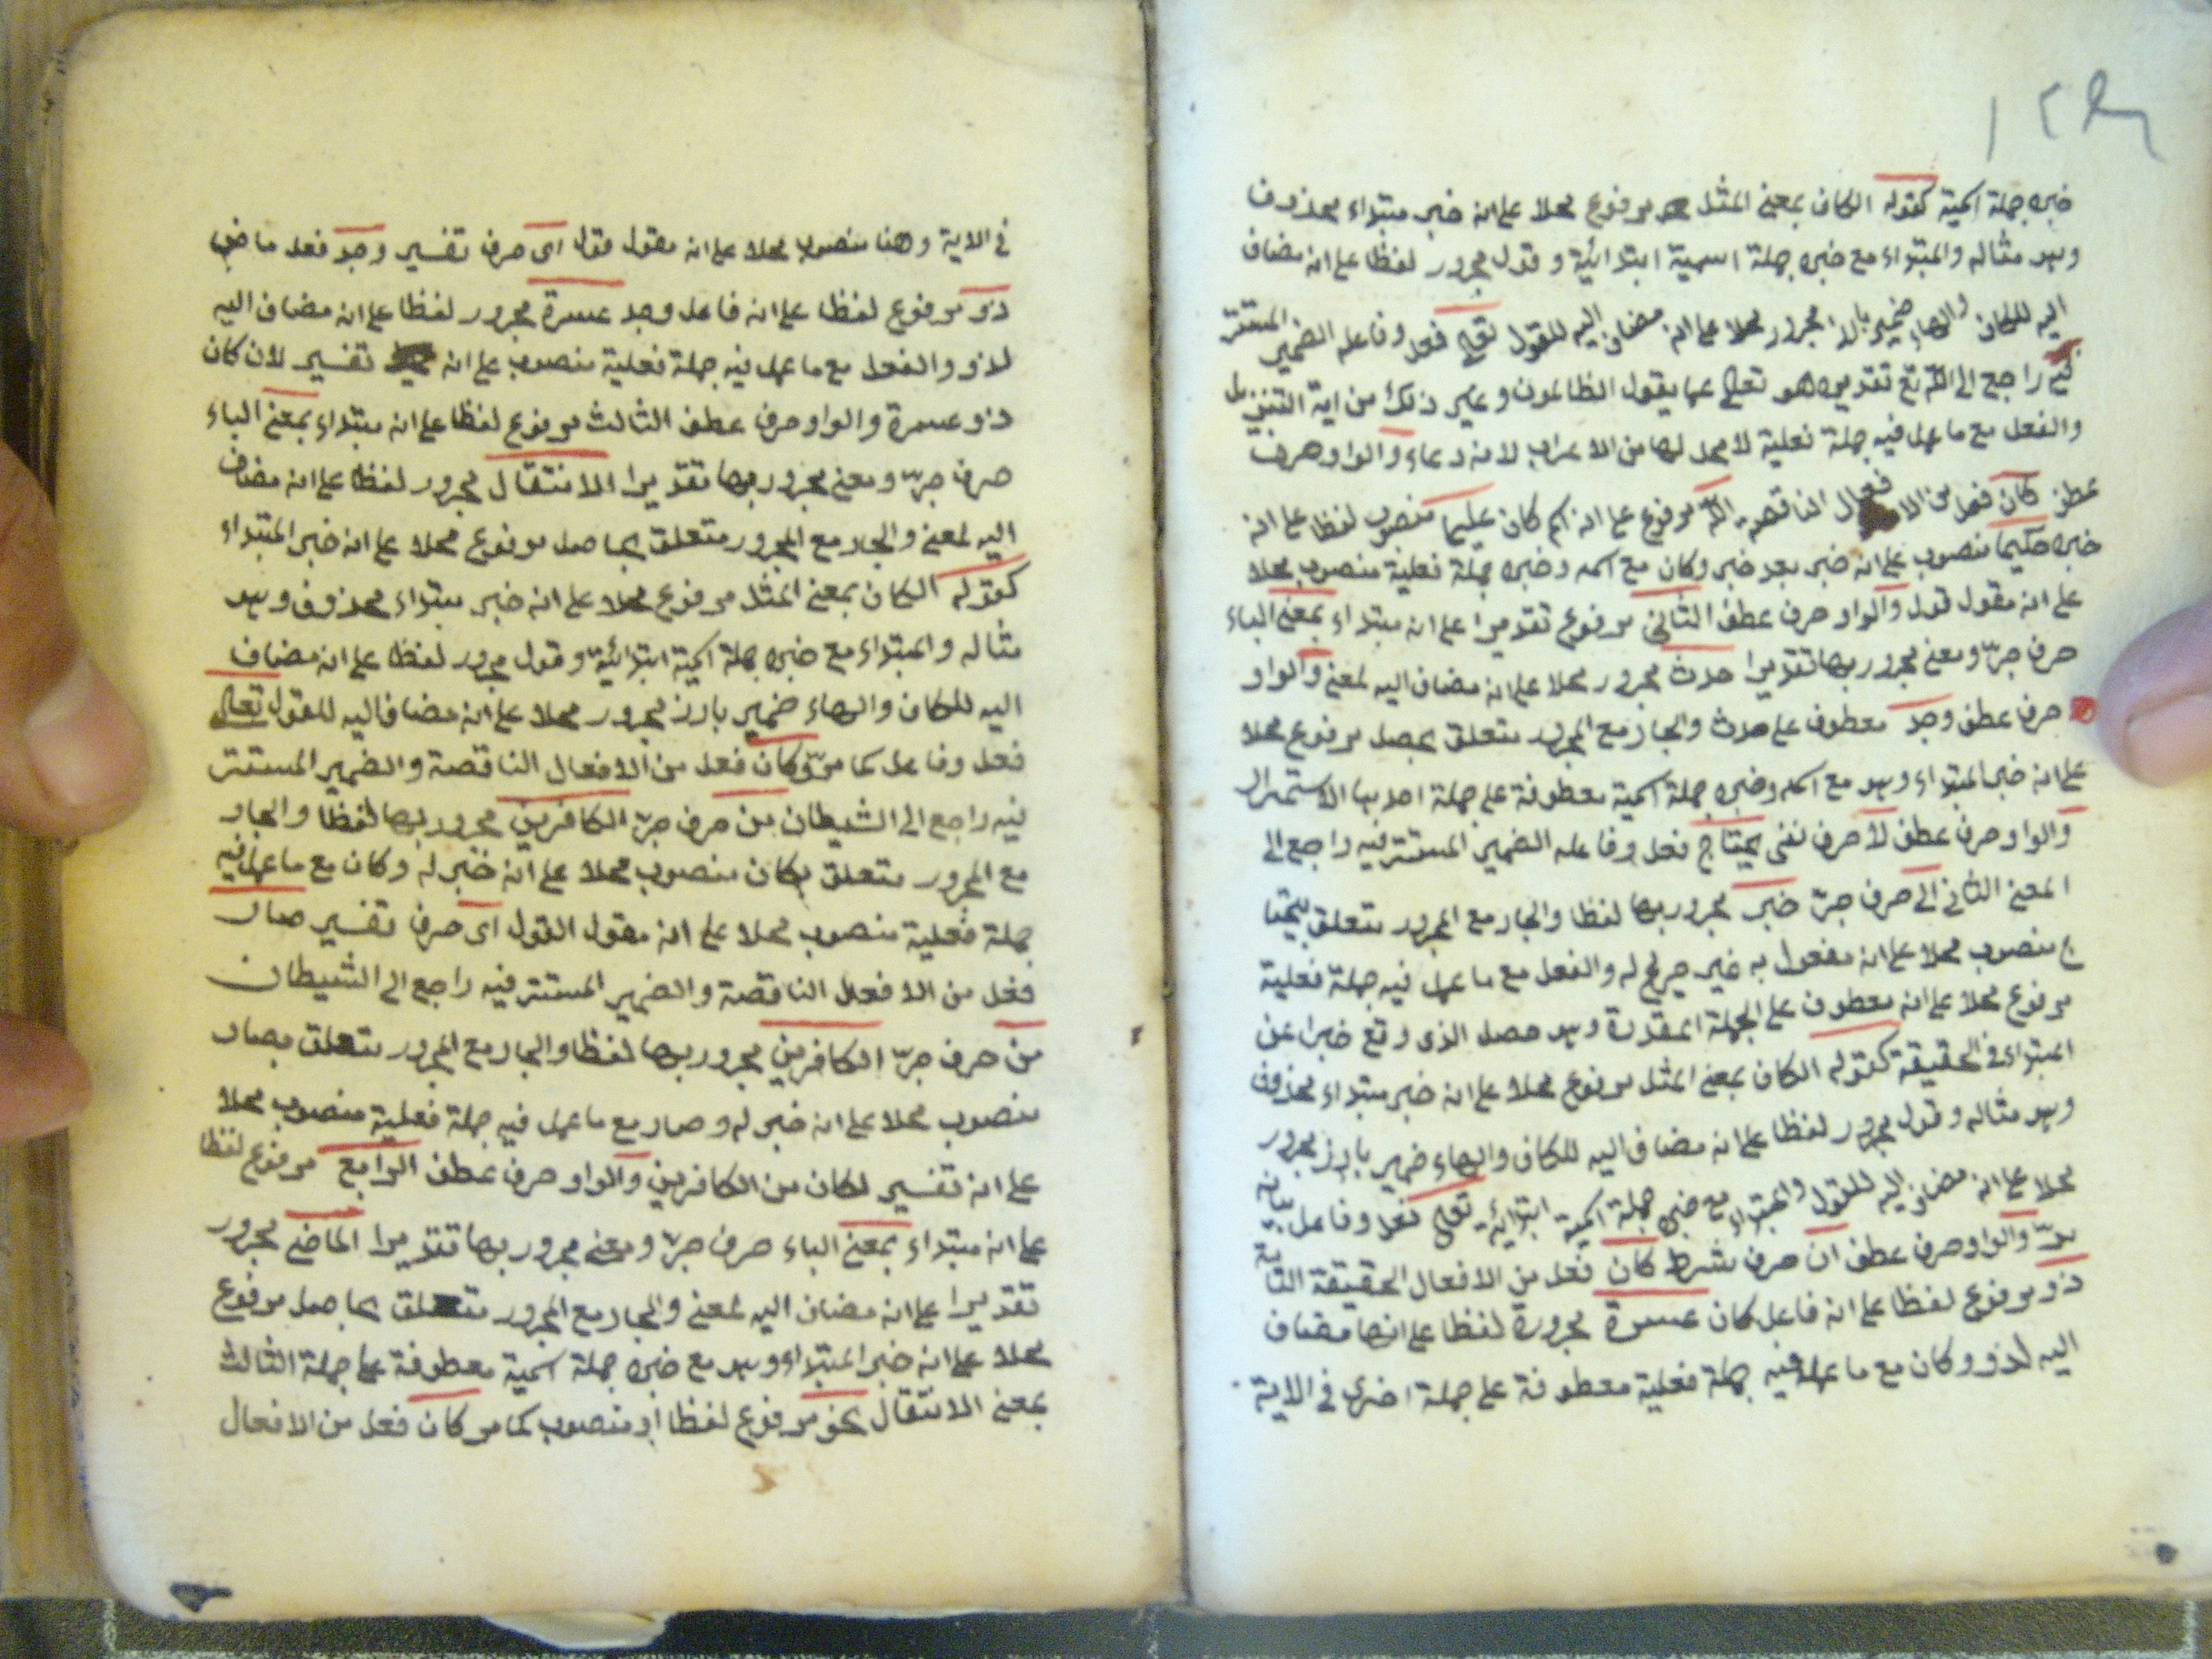 ١٢٩
خبره جملة اسمية كقوله الكاف بمعنى المثل مرفوع محلا على انه خبر مبتداء محذوف
وهو مثاله والمبتداء مع خبره جملة اسمية ابتدائية وقول مجرور لفظا على انه مضاف
اليه للكاف والهاء ضمير بارز مجرور محلا على انه مضاف اليه للقول تعالى فعل وفاعله الضمير المستتر
فيه راجع الى الله تع تقديره هو تعالى عما يقول الظالمون وغير ذلك من اية التنزيل
والفعل مع ما عمل فيه جملة فعلية لا محل لها من الاعراب لانه دعاء والواو حرف
عطف كان فعل من الافعال الناقصة الله مرفوع على انه اسم كان عليما منصوب لفظا على انه
خبره حكيما منصوب على انه خبر بعد خبر وكان مع اسمه وخبره جملة فعلية منصوب محلا
على انه مقول قول والواو حرف عطف الثاني مرفوع تقديرا على انه مبتداء بمعنى الباء
حرف جرّ ومعنى مجرور بها تقديرا حدث مجرور محلا على انه مضاف اليه لمعنى والواو
حرف عطف وجد معطوف على حدث والجار مع المجرور متعلق بحصل مرفوع محلا
على انه خبر المبتداء وهو مع اسمه وخبره جملة اسمية معطوفة على جملة احديها الاستمرار
والواو حرف عطف لا حرف نفى يحتاج فعل وفاعله الضمير المستتر فيه راجع الى
المعنى الثاني الى حرف جرّ خبر مجرور بها لفظا والجار مع المجرور متعلق بيحتا
ج منصوب محلا على انه مفعول به غير صريح له والفعل مع ما عمل فيه جملة فعلية
مرفوع محلا على انه معطوف على الجملة المقدرة وهو حصل الذى وقع خبرا عن
المبتداء في الحقيقة كقوله الكاف بمعنى المثل مرفوع محلا على انه خبر مبتداء محذوف
وهو مثاله وقول مجرور لفظا على انه مضاف اليه للكاف والهاء ضمير بارز مجرور
محلا على انه مضاف اليه للقول والمبتداء مع خبره جملة اسمية ابتدائية تعالى فعل وفاعل بيانه
مرّ والواو حرف عطف ان حرف شرط كان فعل من الافعال الحقيقة التامة
ذو مرفوع لفظا على انه فاعل كان عسرة مجرورة لفظا على انها مضاف
اليه لذو وكان مع ما عمل فيه جملة فعلية معطوفة على جملة اخرى في الاية
في الاية وهنا منصوب محلا على انه مقول قول اى حرف تفسير وجد فعل ماض
ذو مرفوع لفظا على انه فاعل وجد عسرة مجرور لفظا على انه مضاف اليه
لذو والفعل مع ما عمل فيه جملة فعلية منصوب على انه تفسير لان كان
ذو عسرة والواو حرف عطف الثالث مرفوع لفظا على انه مبتداء بمعنى الباء
حرف جرّ ومعنى مجرور بها تقديرا الانتقال مجرور لفظا على انه مضاف
اليه لمعنى والجار مع المجرور متعلق بحاصل مرفوع محلا على انه خبر المبتداء
كقوله الكاف بمعنى المثل مرفوع محلا على انه خبر مبتداء محذوف وهو
مثاله والمبتداء مع خبره جملة اسمية ابتدائية وقول مجرور لفظا على انه مضاف
اليه للكاف والهاء ضمير بارز مجرور محلا على انه مضاف اليه للقول تعالى
فعل وفاعل كما مرّ وكان فعل من الافعال الناقصة والضمير المستتر
فيه راجع الى الشيطان من حرف جرّ الكافرين مجرور بها لفظا والجار
مع المجرور متعلق بكان منصوب محلا على انه خبر له وكان مع ما عمل فيه
جملة فعلية منصوب محلا على انه مقول القول اى حرف تفسير صار
فعل من الافعال الناقصة والضمير المستتر فيه راجع الى الشيطان
من حرف جرّ الكافرين مجرور بها لفظا والجار مع المجرور متعلق بصار
منصوب محلا على انه خبر له وصار مع ما عمل فيه جملة فعلية منصوب محلا
على انه تفسير لكان من الكافرين والواو حرف عطف الرابع مرفوع لفظا
على انه مبتداء بمعنى الباء حرف جرّ ومعنى مجرور بها تقديرا الماضى مجرور
تقديرا على انه مضاف اليه لمعنى والجار مع المجرور متعلق بحاصل مرفوع
محلا على انه خبر المبتداء وهو مع خبره جملة اسمية معطوفة على جملة الثالث
بمعنى الانتقال نحو مرفوع لفظا او منصوب كما مر كان فعل من الافعال